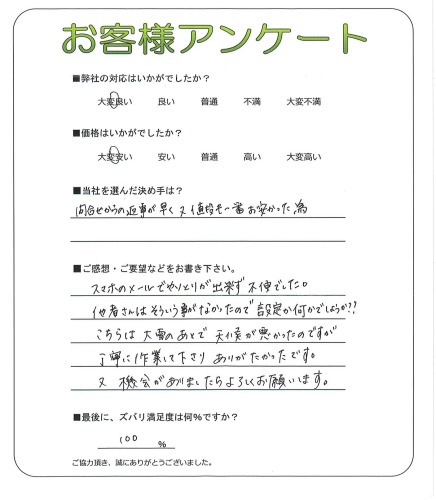 お客様アンケート
■弊社の対応はいかがでしたか?
大変良い 良い 普通 不満 大変不満
■価格はいかがでしたか?
大変安い 安い 普通 高い 大変高い
■当社を選んだ決め手は?
問合せからの返事が早く又値段も一番お安かった為
■ご感想・ご要望などをお書き下さい。
スマホのメールでやりとりが出来ず不便でした。
他者さんはそういう事がなかったので設定か何かでしょうか??
こちらは大雪のあとで天候が悪かったのですが
丁寧に作業して下さりありがたかったです。
又機会がありましたらよろしくお願いします。
■最後に、ズバリ満足度は何%ですか?
100 %
ご協力頂き、誠にありがとうございました。